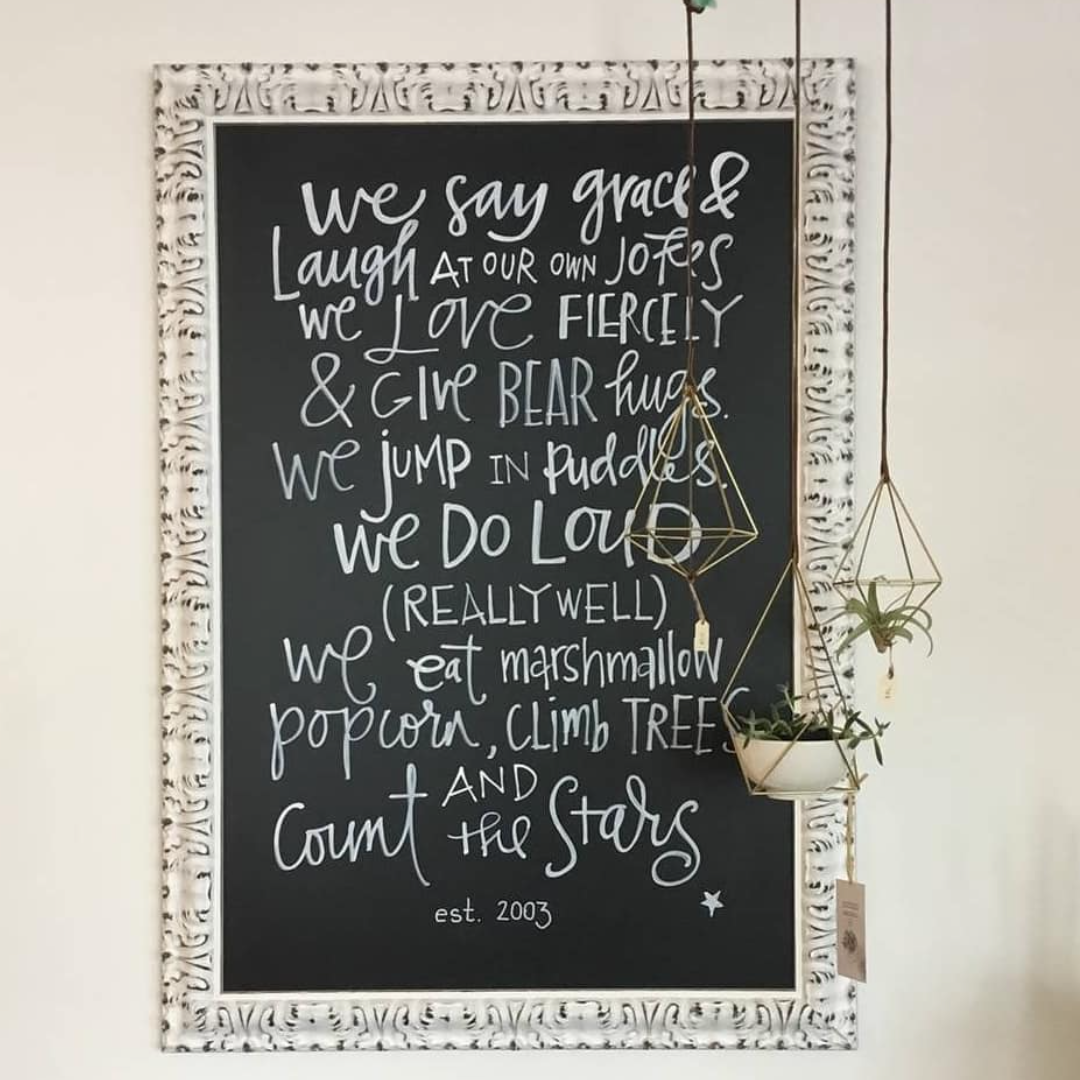 we say grace &
Laugh AT OUR OWN JOKES
we Love FIERCELY
& GIVE BEAR hugs.
we jUMP IN puddles.
we Do LouD
(REALLY WELL)
we eat marshmallow
popcorn, CLimb TREES
AND
Count the Stars
est. 2003